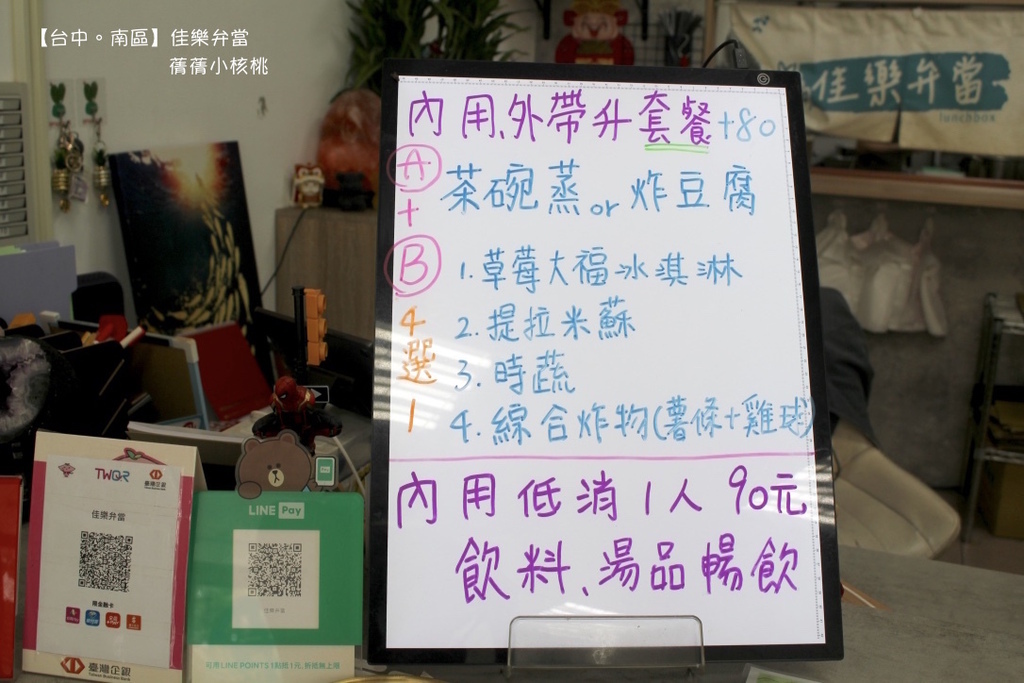 【台中。南區】佳樂弁當
蒨蒨小核桃
佳樂弁當
lunchbox
內用、外帶升套餐+80
A 茶碗蒸 or 炸豆腐
+
B 1.草莓大福冰淇淋
4選1
2.提拉米蘇
3.時蔬
4.綜合炸物(薯條+雞球)
內用低消1人90元
飲料、湯品暢飲
TWQR 臺灣企銀
佳樂弁當
臺灣企銀
Taiwan Business Bank
LINE Pay
佳樂弁當